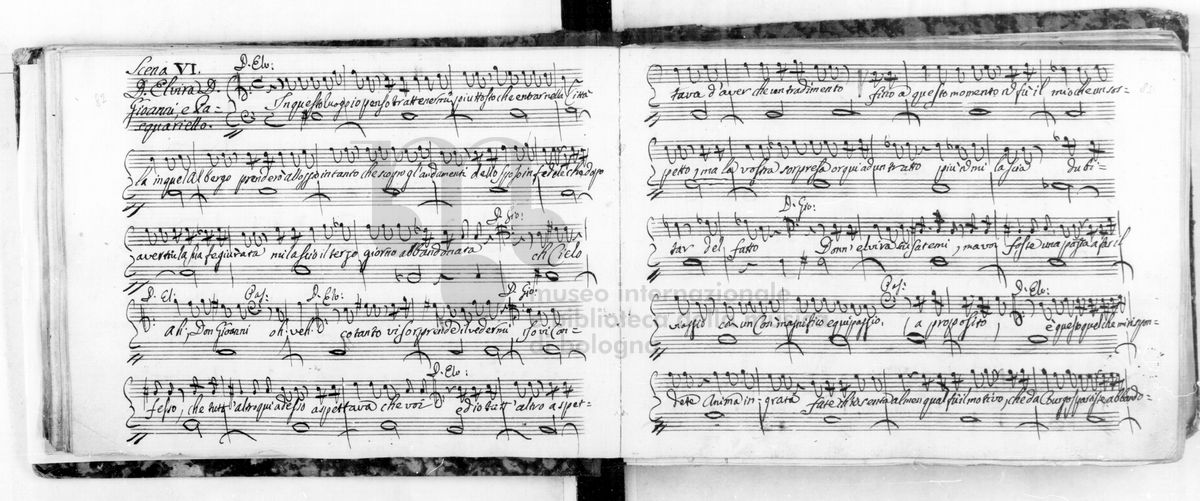 82
83
Scena VI.
D. Elvira D.
Giovanni, e Pa=
squariello.
D. Elv:
In questo luogo io penso trattenermi più tosto che entrar nella Città
la in quel Albergo prenderò alloggio intanto che scopro gl'andamenti dello sposo infedele che dopo
avermi la fia fè giurata mi lasciò il terzo giorno abbandonata
D. Gio:
oh Cielo
D. El:
Ah, Don Giovani
Pas:
oh ve!!
D. Elv:
cotanto vi sorprende il vedermi
D. Gio:
Io vi con=
fesso, che tutt'altro qui adesso aspettava che voi
D. Elv:
ed io tutt'altro aspet=
tava d'aver che un tradimento fino a questo momento non fu il mio che un sos=
petto, ma la vostra sorpresa or qui ad un tratto più non mi lascia dubi=
tar del fatto
D. Gio:
Donn'elvira scusatemi, ma voi foste una pazza a far il
viaggio con un Con magnifico equipaggio.
Pas:
(a proposito)
D. Elv:
e questo quel che mi rispon=
dete Anima ingrata fate ch'io senta almen qual fu il motivo, che da Burgos parsiste abbando=
museo internazionale
biblioteca della musica
di bologna